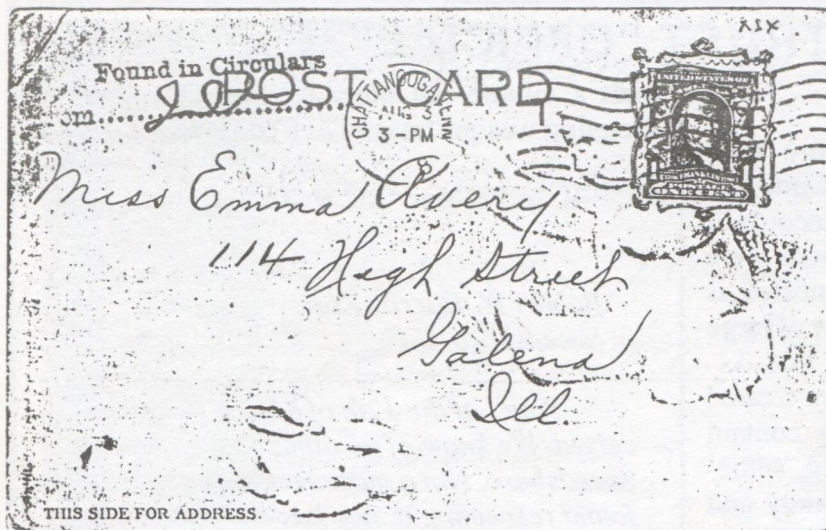 Found in Circulars
POST CARD
CHATTANOOGA, TENN
AUG 3
3-PM
Miss Emma Avery
114 High Street
Galena
Ill.
THIS SIDE FOR ADDRESS.